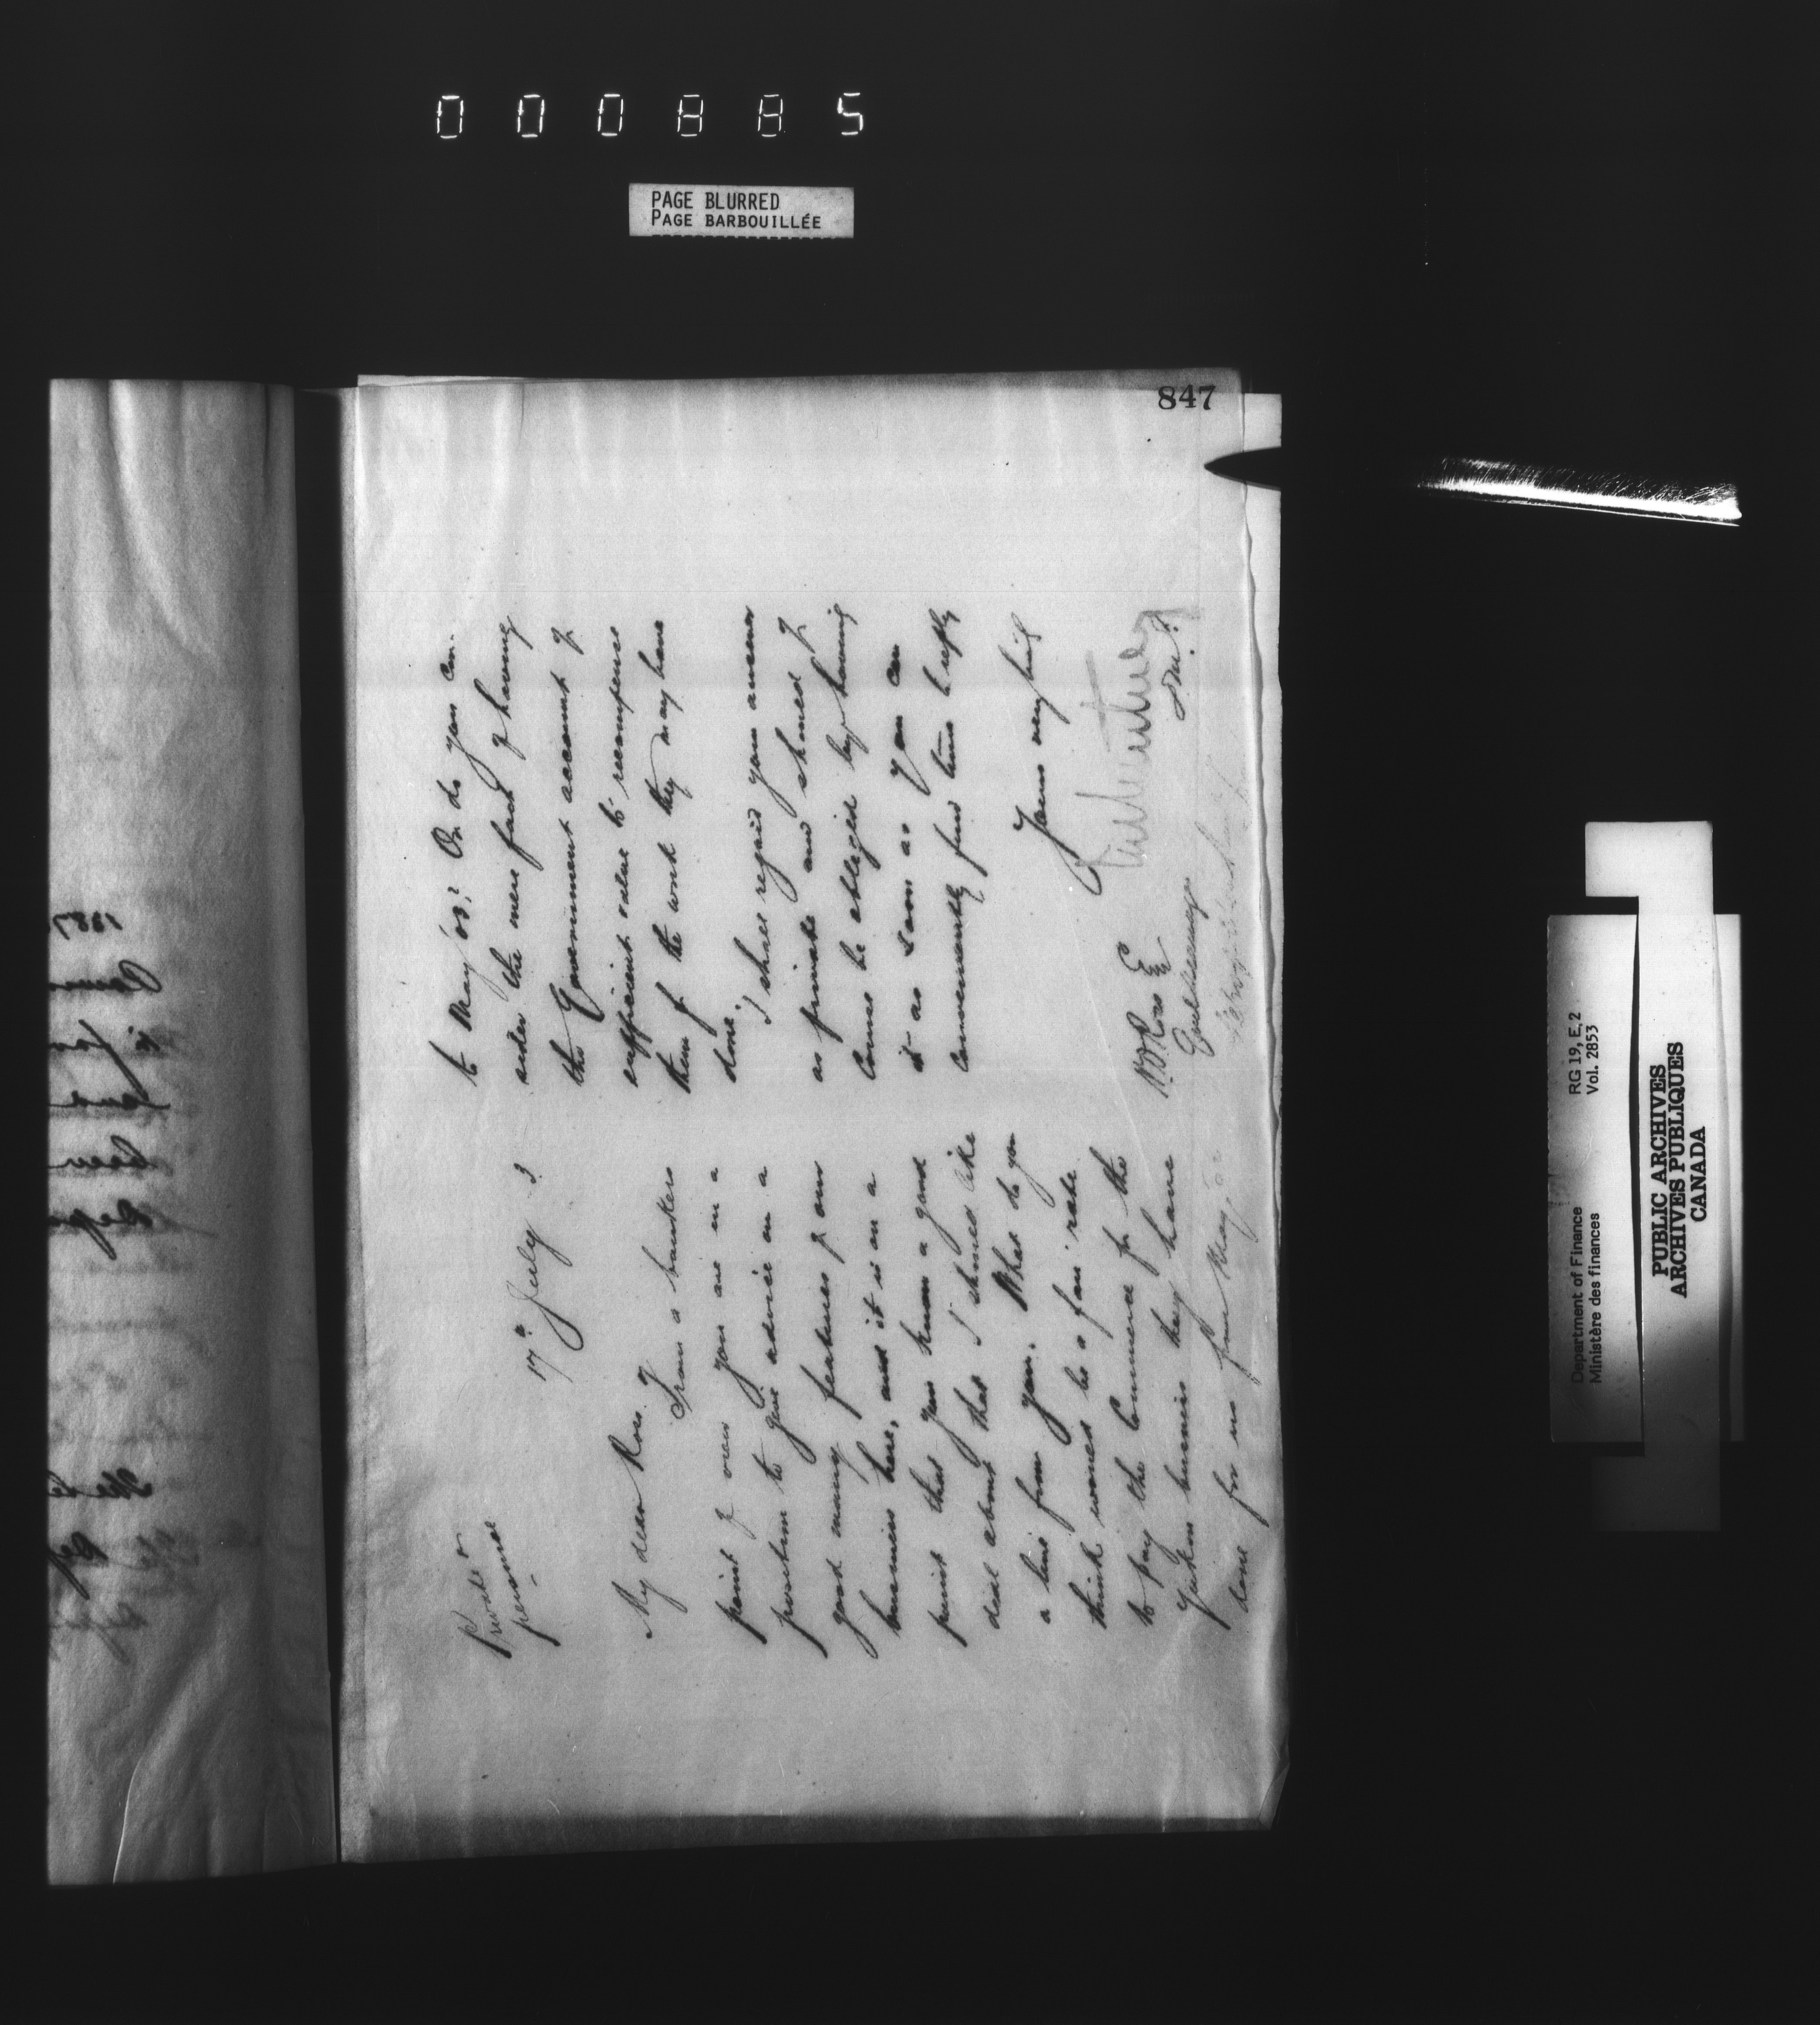 000885
PAGE BLURRED
PAGE BARBOUILLÉE
847
Private &
personal
17" July 3
My dear Ross,
From a bankers
point of view you are in a
position to give advice on a
good many features of our
business here, and it is on a
point that you know a good
deal about that I should like
a line from you. What do you
think would be a fair rate
to pay the Commerce for the
Yukon business they have
done for us from May,
to May '03? Or do you con-
sider the mere fact of having
the Government account of
sufficient value to recompense
them for the work they may have
done.
I shall regard your answer
as private and should of
course be obliged by having
it as soon as you can
conveniently find time to reply
Yours very truly
W D Ross E
Department of Finance
Ministère des finances
RG 19, E, 2
Vol. 2853
PUBLIC ARCHIVES
ARCHIVES PUBLIQUES
CANADA